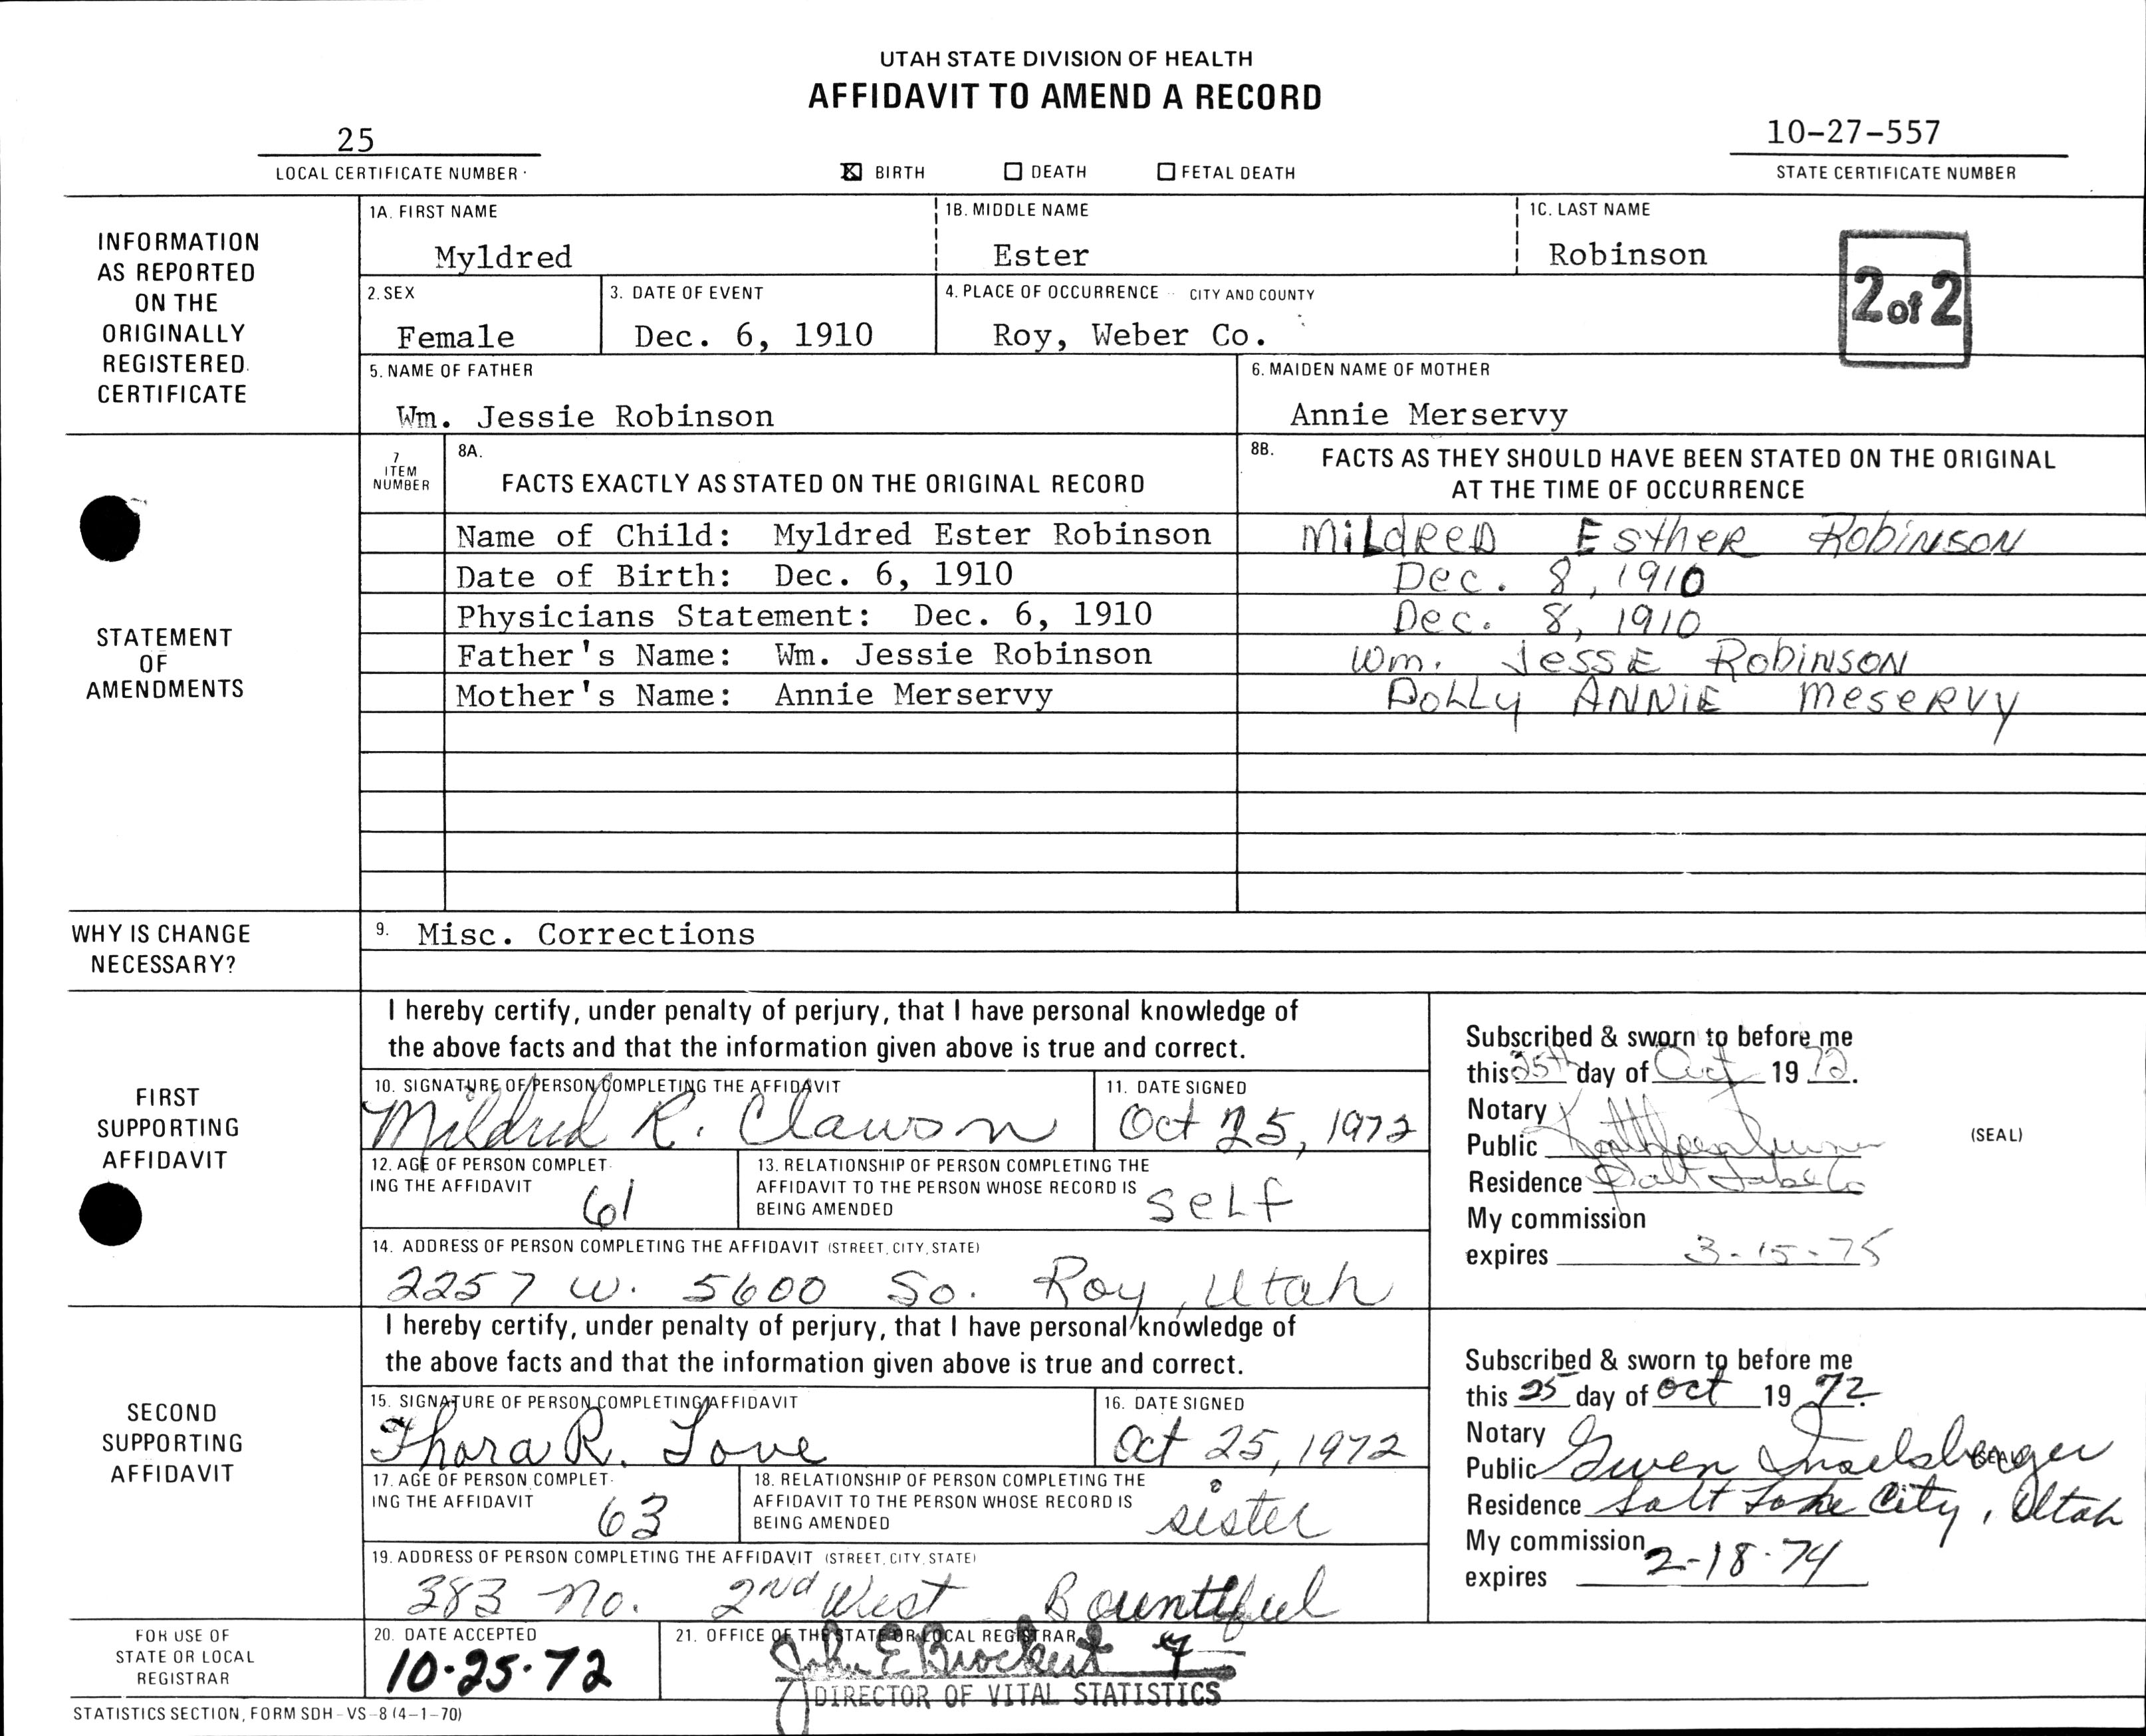 UTAH STATE DIVISION OF HEALTH
AFFIDAVIT TO AMEND A RECORD
25
LOCAL CERTIFICATE NUMBER
☒ BIRTH ☐ DEATH ☐ FETAL DEATH
10-27-557
STATE CERTIFICATE NUMBER
INFORMATION
AS REPORTED
ON THE
ORIGINALLY
REGISTERED
CERTIFICATE
1A. FIRST NAME 1B. MIDDLE NAME 1C. LAST NAME
Myldred Ester Robinson
2 of 2
2. SEX 3. DATE OF EVENT 4. PLACE OF OCCURRENCE - CITY AND COUNTY
Female Dec. 6, 1910 Roy, Weber Co.
5. NAME OF FATHER 6. MAIDEN NAME OF MOTHER
Wm. Jessie Robinson Annie Merservy
STATEMENT
OF
AMENDMENTS
7
ITEM
NUMBER
8A.
FACTS EXACTLY AS STATED ON THE ORIGINAL RECORD
8B. FACTS AS THEY SHOULD HAVE BEEN STATED ON THE ORIGINAL
AT THE TIME OF OCCURRENCE
Name of Child: Myldred Ester Robinson MiLdReD EstheR RobiNSON
Date of Birth: Dec. 6, 1910 Dec. 8, 1910
Physicians Statement: Dec. 6, 1910 Dec. 8, 1910
Father's Name: Wm. Jessie Robinson Wm. JesSE RobiNSON
Mother's Name: Annie Merservy DoLLy ANNiE MeseRVy
WHY IS CHANGE
NECESSARY?
9. Misc. Corrections
FIRST
SUPPORTING
AFFIDAVIT
I hereby certify, under penalty of perjury, that I have personal knowledge of
the above facts and that the information given above is true and correct.
10. SIGNATURE OF PERSON COMPLETING THE AFFIDAVIT 11. DATE SIGNED
Mildred R. Clawson Oct 25, 1972
12. AGE OF PERSON COMPLET-
ING THE AFFIDAVIT 61
13. RELATIONSHIP OF PERSON COMPLETING THE
AFFIDAVIT TO THE PERSON WHOSE RECORD IS
BEING AMENDED seLf
14. ADDRESS OF PERSON COMPLETING THE AFFIDAVIT (STREET, CITY, STATE)
2257 W. 5600 So. Roy, Utah
Subscribed & sworn to before me
this 25th day of Oct 1972.
Notary
Public Kathleen
(SEAL)
Residence Salt Lake Co
My commission
expires 3-15-75
SECOND
SUPPORTING
AFFIDAVIT
I hereby certify, under penalty of perjury, that I have personal knowledge of
the above facts and that the information given above is true and correct.
15. SIGNATURE OF PERSON COMPLETING AFFIDAVIT 16. DATE SIGNED
Thora R. Love Oct 25, 1972
17. AGE OF PERSON COMPLET-
ING THE AFFIDAVIT 63
18. RELATIONSHIP OF PERSON COMPLETING THE
AFFIDAVIT TO THE PERSON WHOSE RECORD IS
BEING AMENDED sister
19. ADDRESS OF PERSON COMPLETING THE AFFIDAVIT (STREET, CITY, STATE)
383 No. 2nd West Bountiful
Subscribed & sworn to before me
this 25 day of Oct 1972.
Notary
Public Gwen
(SEAL)
Residence Salt Lake City, Utah
My commission
expires 2-18-74
FOR USE OF
STATE OR LOCAL
REGISTRAR
20. DATE ACCEPTED 21. OFFICE OF THE STATE OR LOCAL REGISTRAR
10-25-72 John E Brockert
DIRECTOR OF VITAL STATISTICS
STATISTICS SECTION, FORM SDH-VS-8 (4-1-70)